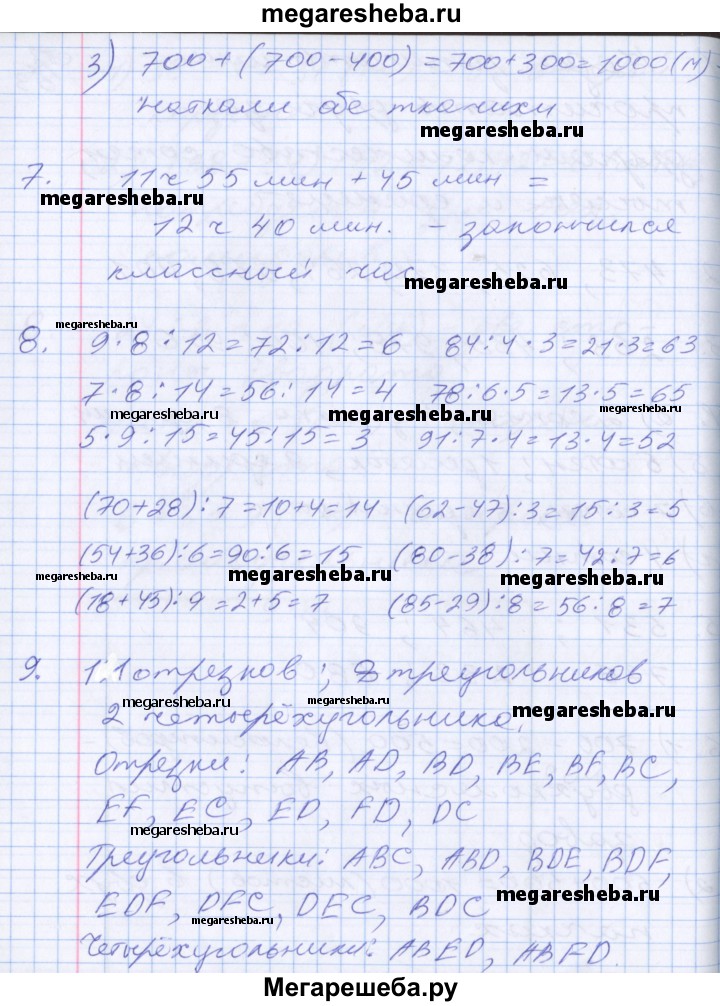 megaresheba.ru
3) 700+(700-400)=700+300=1000(м)-
наткали обе ткачихи
megaresheba.ru
7. 11 ч 55 мин + 45 мин =
megaresheba.ru
12 ч 40 мин. - закончился
классный час
megaresheba.ru
megaresheba.ru
8. 9·8:12=72:12=6 84:4·3=21·3=63
7·8:14=56:14=4 78:6·5=13·5=65
megaresheba.ru megaresheba.ru megaresheba.ru
5·9:15=45:15=3 91:7·4=13·4=52
(70+28):7=10+4=14 (62-47):3=15:3=5
(54+36):6=90:6=15 (80-38):7=42:7=6
megaresheba.ru megaresheba.ru megaresheba.ru
(18+45):9=2+5=7 (85-29):8=56:8=7
9. 11 отрезков; 8 треугольников
megaresheba.ru megaresheba.ru
2 четырёхугольника. megaresheba.ru
Отрезки: AB, AD, BD, BE, BF, BC,
EF, EC, ED, FD, DC
megaresheba.ru
Треугольники: ABC, ABD, BDE, BDF,
megaresheba.ru
EDF, DFC, DEC, BDC
megaresheba.ru
Четырёхугольники: ABED, ABFD.
Мегарешеба.ру